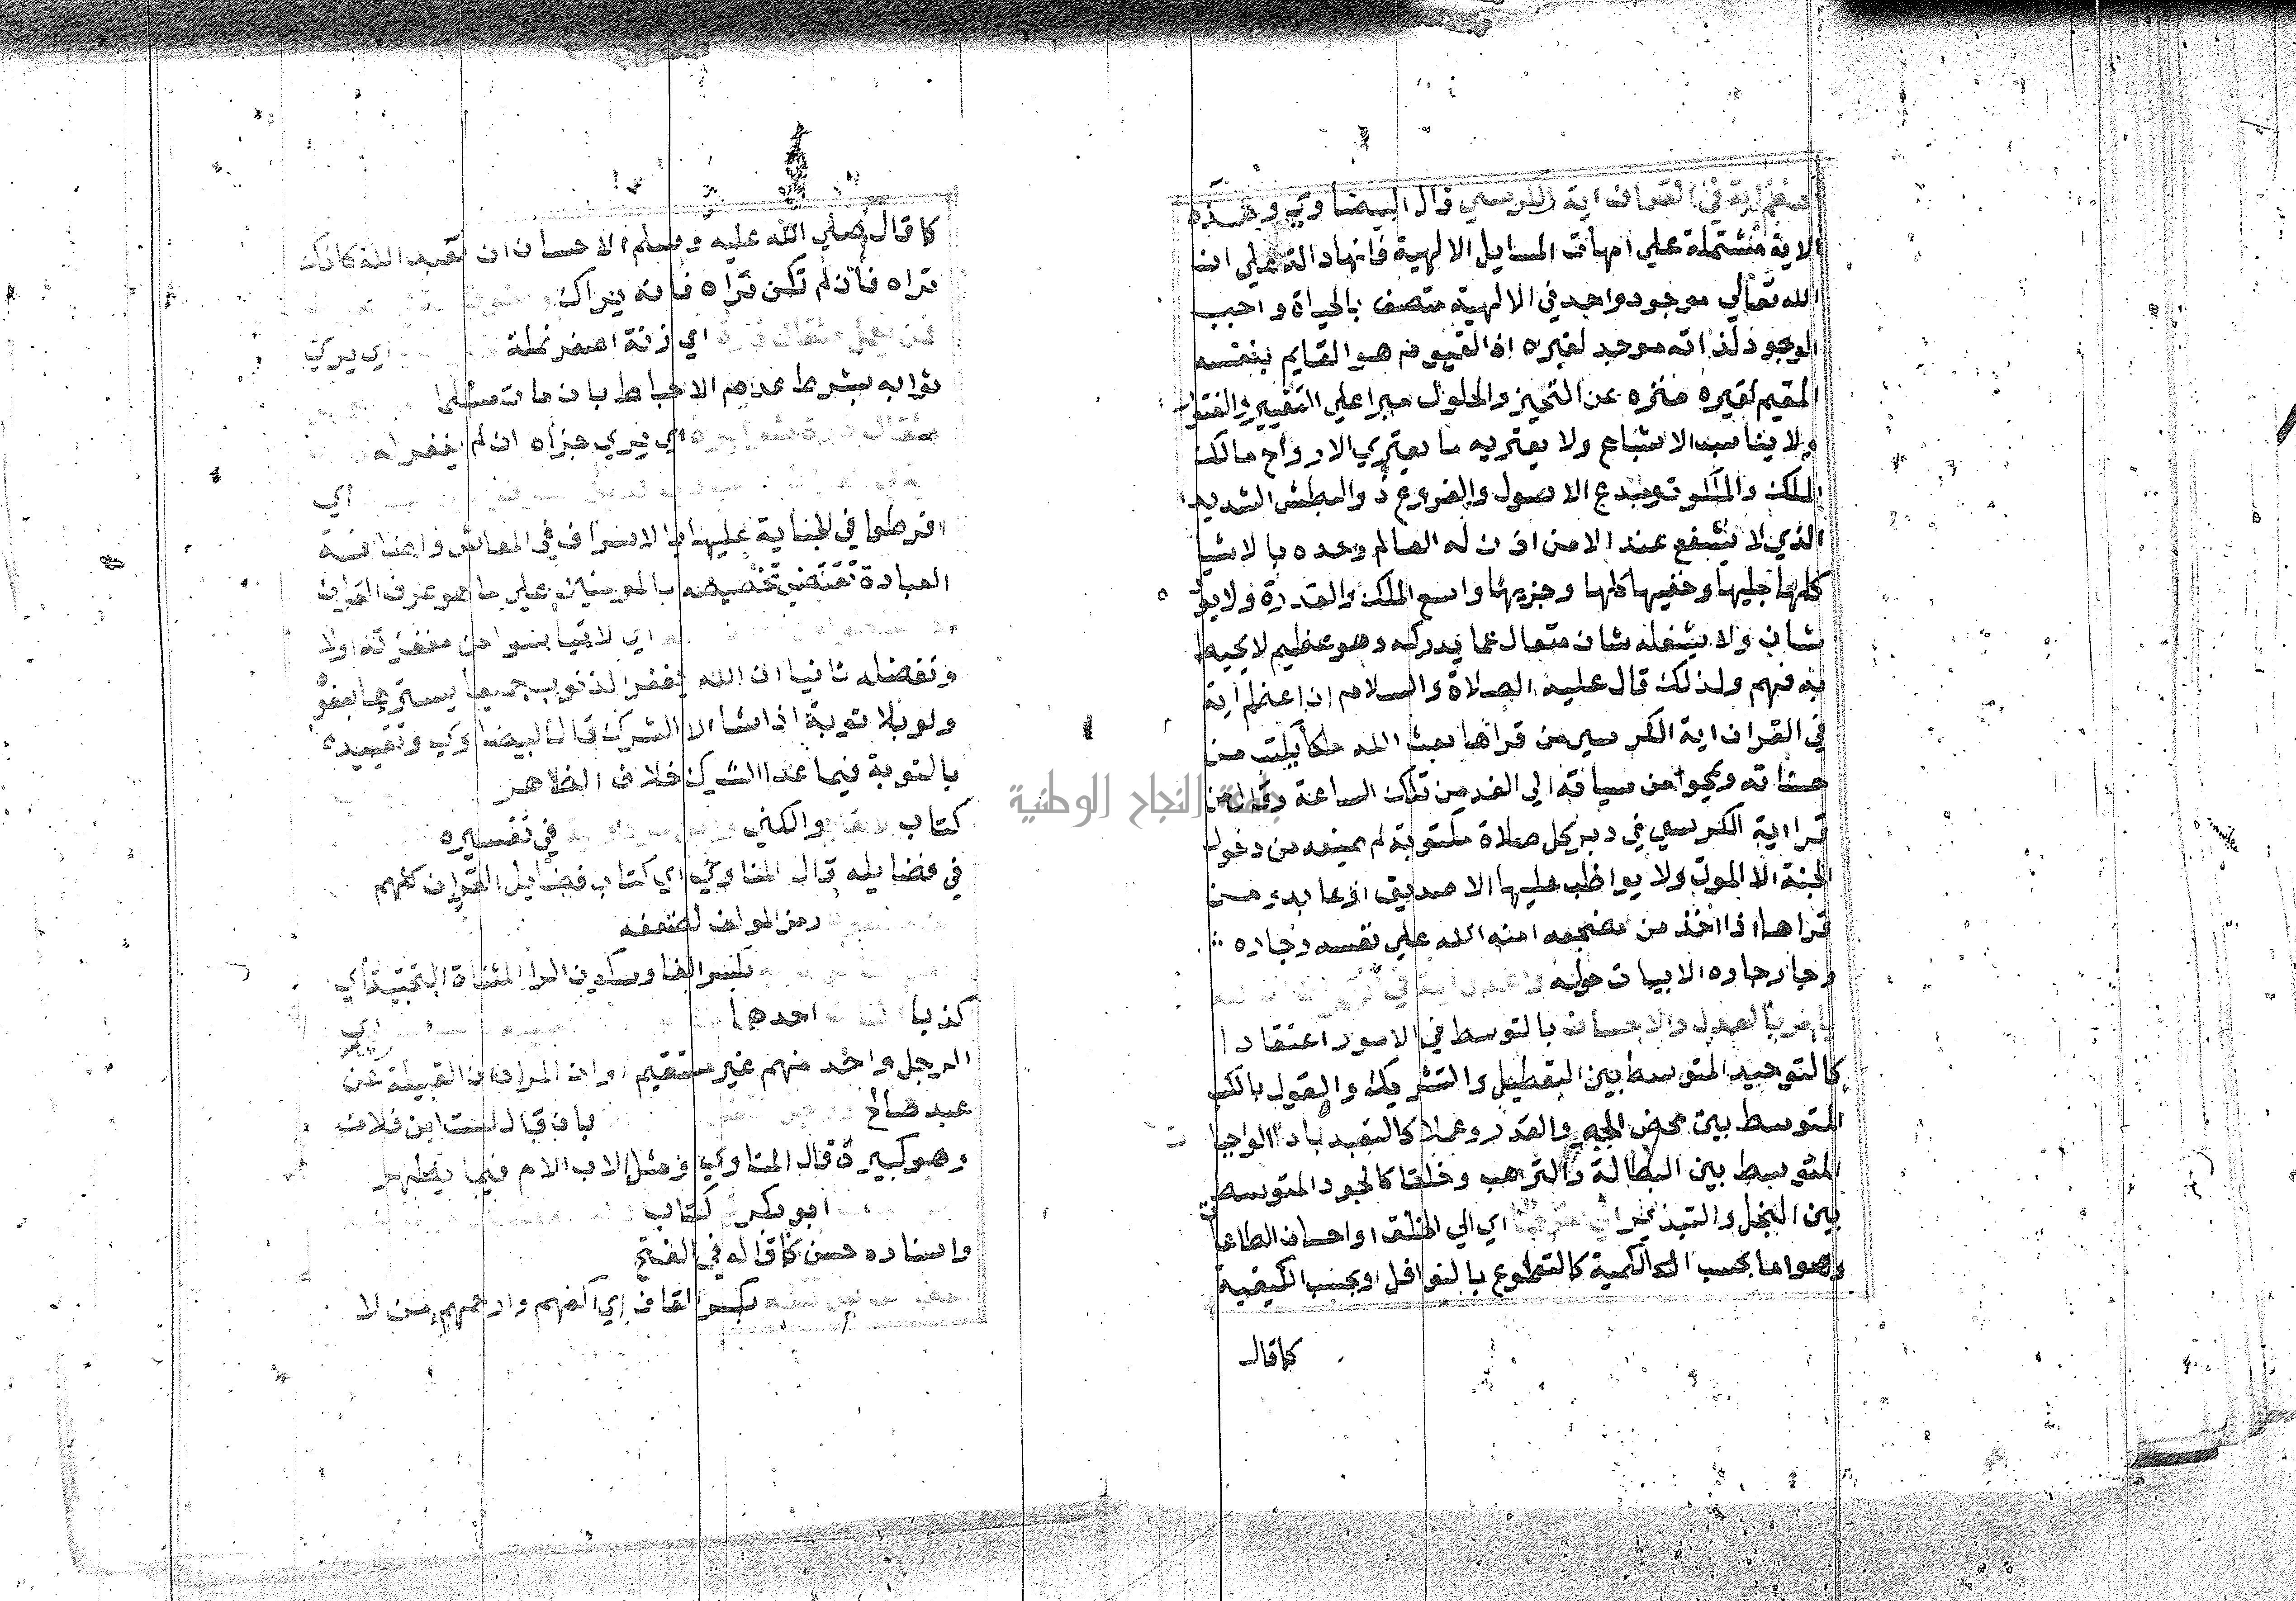 اعظم اية في القران اية الكرسي قال البيضاوي وهذه
الاية مشتملة علي امهات المسايل الالهية فانها دالة علي ان
الله تعالي موجود واحد في الالهية متصف بالحياة واجب
الوجود لذاته موجد لغيره اذ القيوم هو القايم بنفسه
المقيم لغيره منزه عن التحيز والحلول مبرا علي التغيير والفتور
ولا يناسب الاشباح ولا يعتريه ما يعتري الارواح مالك
الملك والملكوت ومبدع الاصول والفروع ذو البطش الشديد
الذي لا يشفع عنده الا من اذن له العالم وحده بالاشيا
كلها جليها وخفيها كلها وجزيها واسع الملك والقدرة ولا يو
شان ولا يشغله شان متعال عما يدركه وهو عظيم لا يحيط
به فهم ولذلك قال عليه الصلاة والسلام ان اعظم اية
في القران اية الكرسي من قراها بعث الله ملكا يكتب من
حسناته ويمحوا من سياته الي الغد من تلك الساعة وقال من
قرا اية الكرسي في دبر كل صلاة مكتوبة لم يمنعه من دخول
الجنة الا الموت ولا يواظب عليها الا صديق او عابد ومن
قراها اذا اخذ من مضجعه امنه الله علي نفسه وجاره
وجار جاره الابيات حوله واعدل اية في القران ان الله
يامر بالعدل والاحسان بالتوسط في الامور اعتقادا
كالتوحيد المتوسط بين التعطيل والتشريك والقول بالكسب
المتوسط بين محض الجبر والقدر وعملا كالتعبد بادا الواجبات
المتوسط بين البطالة والترهب وخلقا كالجود المتوسط
بين البخل والتبذير اي الي الخلق او احسان الطاعات
وهو اما بحسب الكمية كالتطوع بالنوافل او بحسب الكيفية
كما قال
كما قال صلي الله عليه وسلم الاحسان ان تعبد الله كانك
تراه فان لم تكن تراه فانه يراك
فمن يعمل مثقال ذرة اي زنة اصغر نملة اي يري
ثوابه بشرط عدم الاحباط بان مات مسلما
مثقال ذرة شرا يره اي يري جزاه ان لم يغفر له
اي
افرطوا في الجناية عليها بالاسراف في المعاش واضافة
العبادة تقتضي تخصيصه بالمومنين علي ما هو عرف القران
اي لا تيا يسوا من مغفرته اولا
وتفضله ثانيا ان الله يغفر الذنوب جميعا يسترها بعفوه
ولو بلا توبة اذا شا الا الشرك قال البيضاوي وتقييده
بالتوبة فيما عدا الشرك خلاف الظاهر
كتاب والكني في تفسيره
في فضايله قال المناوي اي كتاب فضايل القران كلهم
رمز المولف لضعفه
بكسر الفا وسكون الرا المثناة التحتية اي
كذبا احدها اي
الرجل واحد منهم غير مستقيم او ان المراد ان القبيلة عن
عبد صالح بان قال لست ابن فلان
وهو كبيرة قال المناوي ومثل الاب الام فيما يظهر
ابو بكر كتاب
واسناده حسن كما قاله في الفتح
بكسر القاف اي اكفهم وارحمهم من لا
جامعة النجاح الوطنية